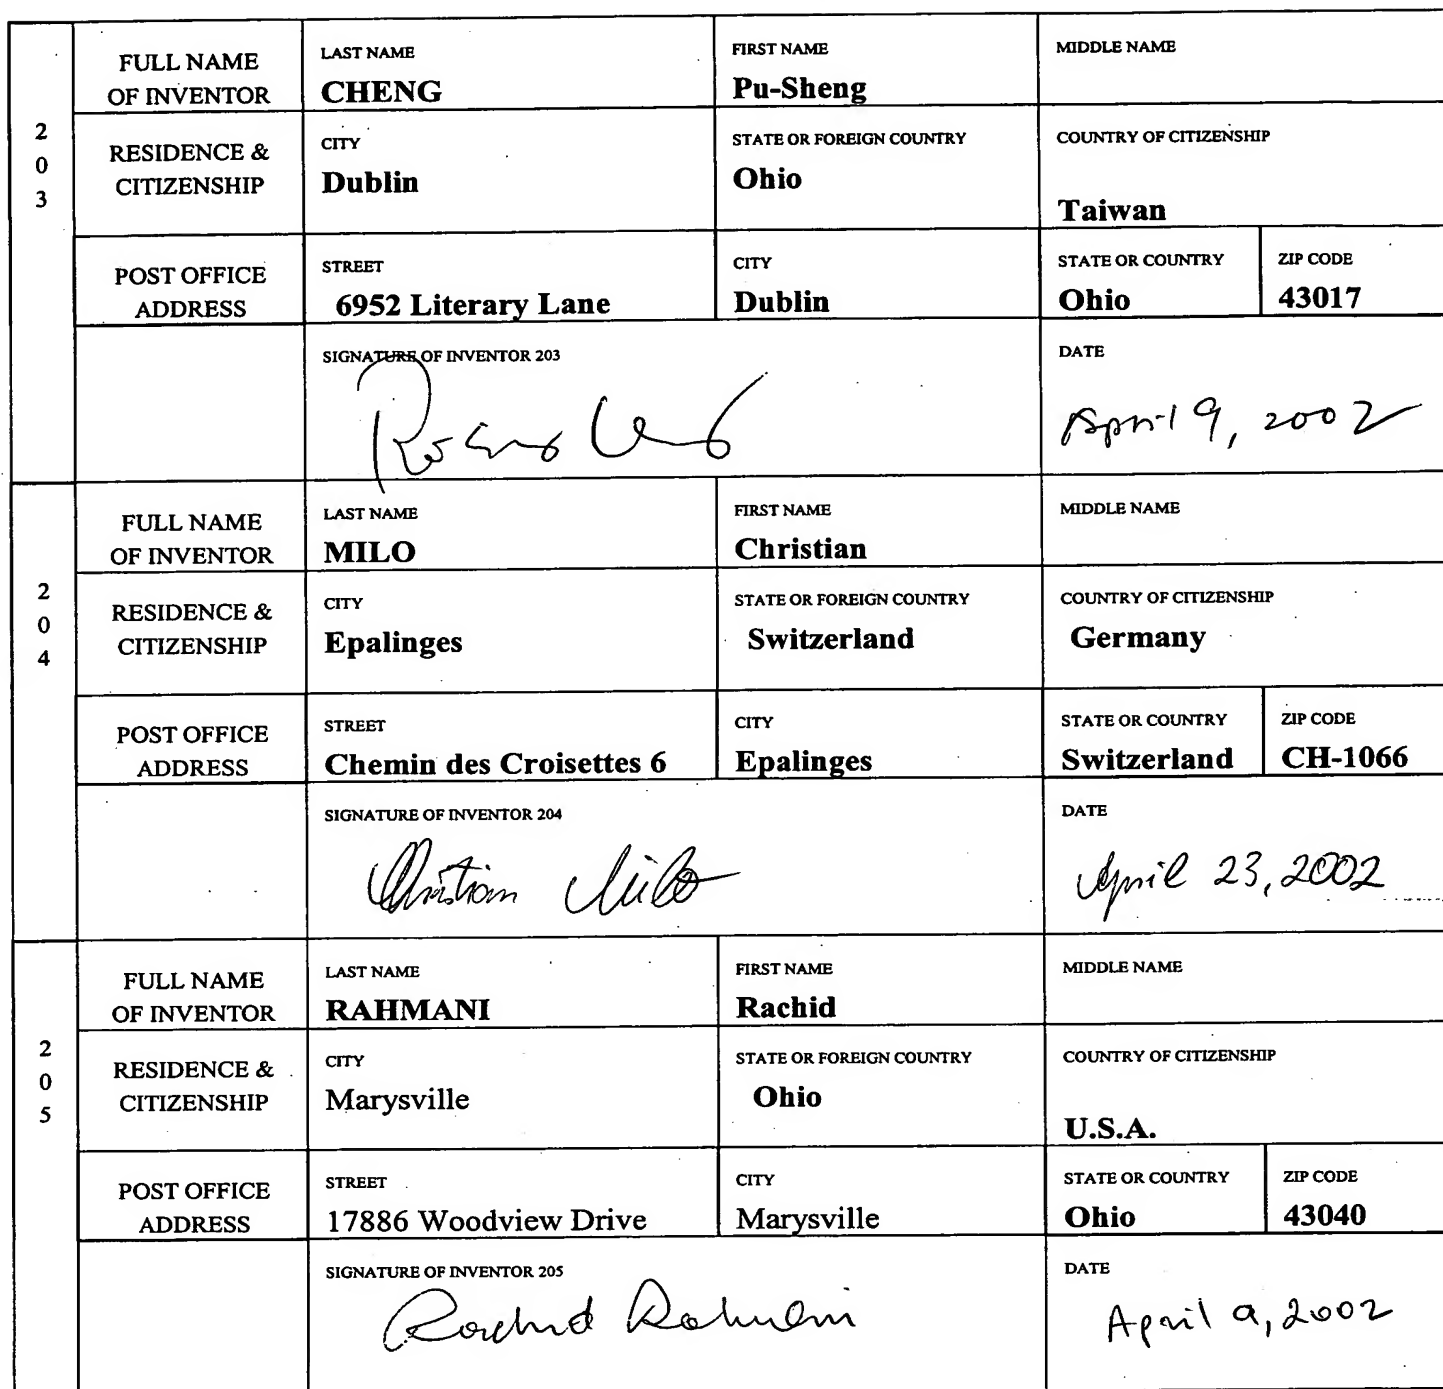 203
FULL NAME OF INVENTOR
LAST NAME
CHENG
FIRST NAME
Pu-Sheng
MIDDLE NAME
RESIDENCE & CITIZENSHIP
CITY
Dublin
STATE OR FOREIGN COUNTRY
Ohio
COUNTRY OF CITIZENSHIP
Taiwan
POST OFFICE ADDRESS
STREET
6952 Literary Lane
CITY
Dublin
STATE OR COUNTRY
Ohio
ZIP CODE
43017
SIGNATURE OF INVENTOR 203
DATE
April 9, 2002
204
FULL NAME OF INVENTOR
LAST NAME
MILO
FIRST NAME
Christian
MIDDLE NAME
RESIDENCE & CITIZENSHIP
CITY
Epalinges
STATE OR FOREIGN COUNTRY
Switzerland
COUNTRY OF CITIZENSHIP
Germany
POST OFFICE ADDRESS
STREET
Chemin des Croisettes 6
CITY
Epalinges
STATE OR COUNTRY
Switzerland
ZIP CODE
CH-1066
SIGNATURE OF INVENTOR 204
Christian Milo
DATE
April 23, 2002
205
FULL NAME OF INVENTOR
LAST NAME
RAHMANI
FIRST NAME
Rachid
MIDDLE NAME
RESIDENCE & CITIZENSHIP
CITY
Marysville
STATE OR FOREIGN COUNTRY
Ohio
COUNTRY OF CITIZENSHIP
U.S.A.
POST OFFICE ADDRESS
STREET
17886 Woodview Drive
CITY
Marysville
STATE OR COUNTRY
Ohio
ZIP CODE
43040
SIGNATURE OF INVENTOR 205
Rachid Rahmani
DATE
April 9, 2002